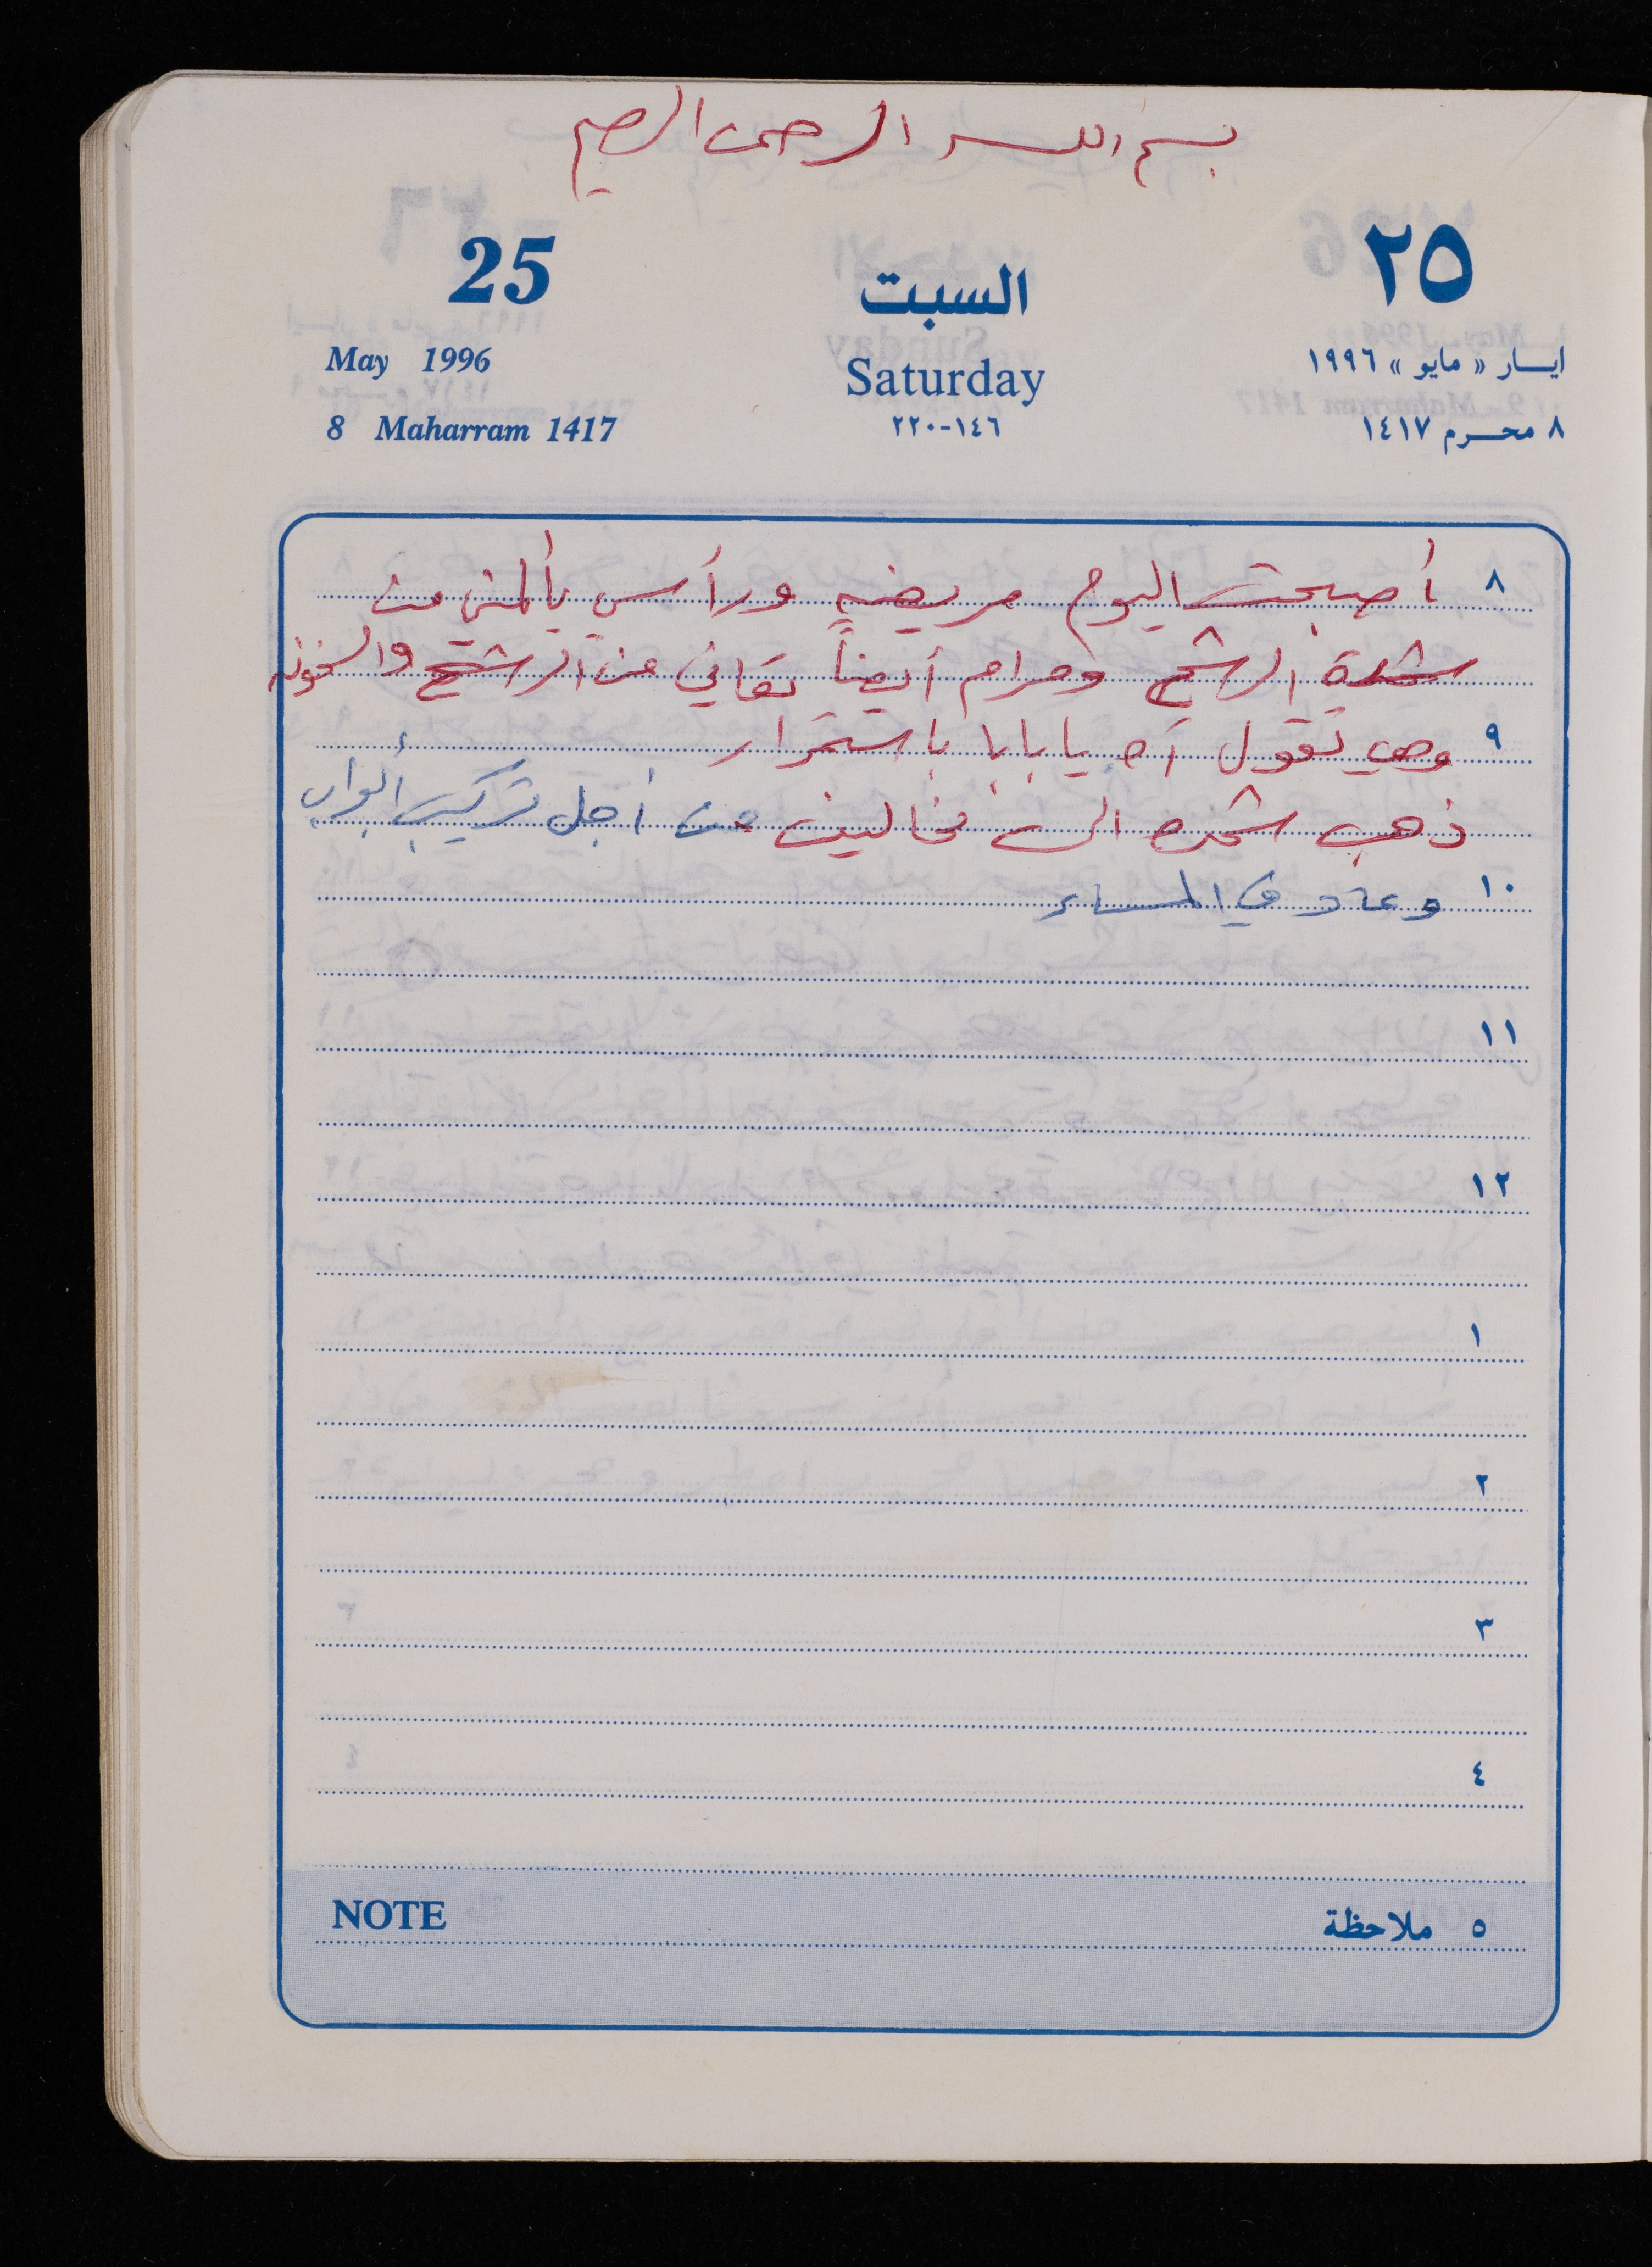 بسم الله الرحمن الرحيم
25 السبت ٢٥
May 1996 Saturday ايسار « مايو » ١٩٩٦
8 Maharram 1417 ١٤٦-٢٢٠ ٨ محرم ١٤١٧
٨ أصبحت اليوم مريضه ورأسي يألمني من
شدة الرشح ومرام أيضاً تعاني من الرشح والسخونه
٩ وهي تقول آه يا بابا باستمرار
ذهب الى من أجل تركيب أبواب
١٠ وعاد في المساء
١١
١٢
١
٢
٣
٤
NOTE ٥ ملاحظة